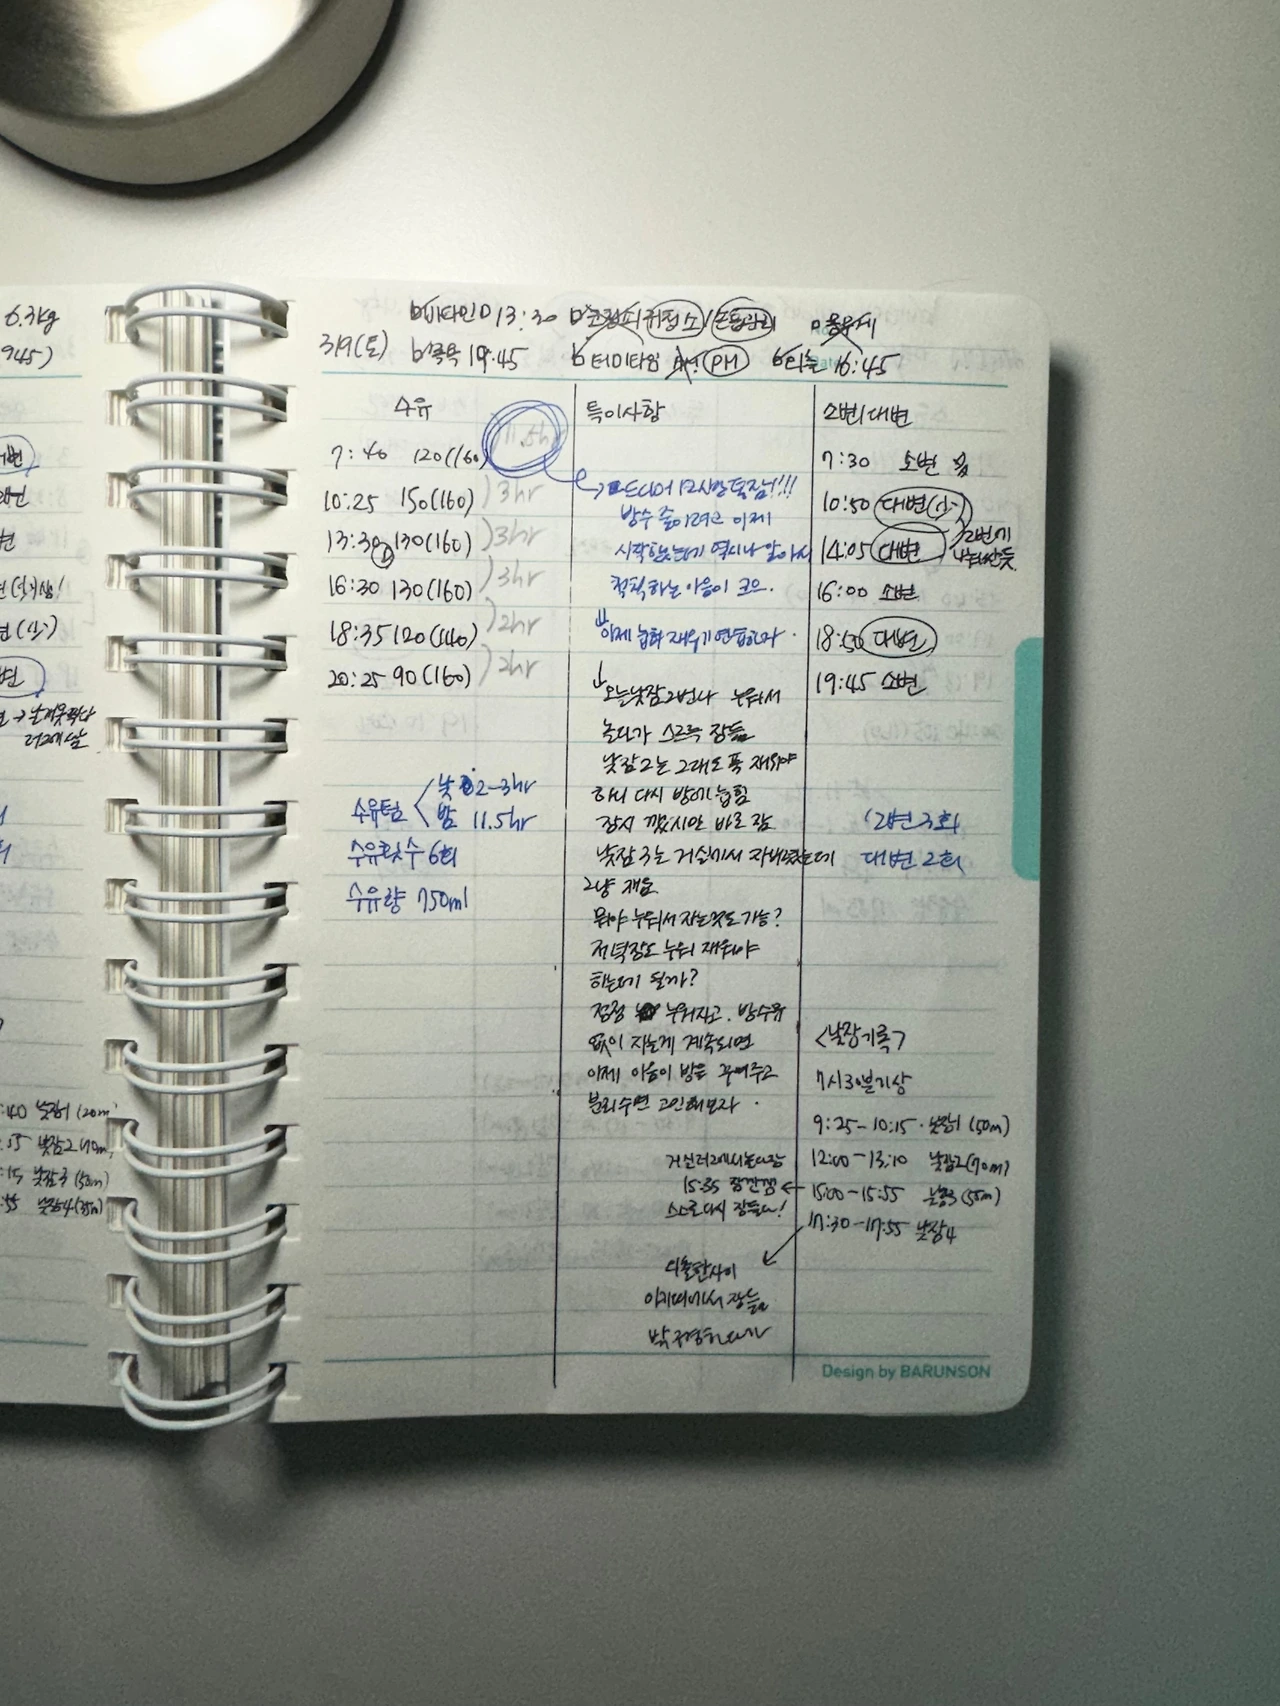 6.3kg
945)
비타민D 13:30
3/9(토) 목욕 19:45 터미타임 PH 16:45
수유 특이사항 소변/대변
7:40 120(160)
10:25 150(160) 3hr
13:30 130(160) 3hr
16:30 130(160) 3hr
18:35 120(140) 2hr
20:25 90(160) 2hr
수유텀 낮 2-3hr
밤 11.5hr
수유횟수 6회
수유량 750ml
드디어 12시간 통잠!!!!
밤수 줄이려고 이제
시작했는데 역시나 알아서
척척하는 아음이 코으.
이제 눕혀 재우기 연습하자.
오늘 낮잠 2번이나 누워서
놀다가 스르륵 잠듦
낮잠2는 그래도 푹 재워야
하니 다시 방에 눕힘
잠시 깼지만 바로 잠
낮잠3는 거실에서 자버렸는데
그냥 재움
뭐야 누워서 자는것도 가능?
저녁잠도 누워 재워야
하는데 될까?
점점 누워자고. 밤수유
없이 자는게 계속되면
이제 아음이 방을 꾸며주고
분리수면 고민해보자.
거실
15:35 잠깐깸
스스로 다시 잠들다!
외출한사이
아기띠에서 잠듦
7:30 소변
10:50 대변(소)
14:05 대변 2번에
나눠싼듯.
16:00 소변
18:50 대변
19:45 소변
소변 3회
대변 2회
<낮잠기록>
7시30분기상
9:25-10:15 낮잠1 (50m)
12:00-13:10 낮잠2(70m)
15:00-15:55 낮잠3 (55m)
17:30-17:55 낮잠4
:40 낮잠1 (20m)
낮잠2
:15 낮잠3 (50m)
:55 낮잠4(35m)
Design by BARUNSON